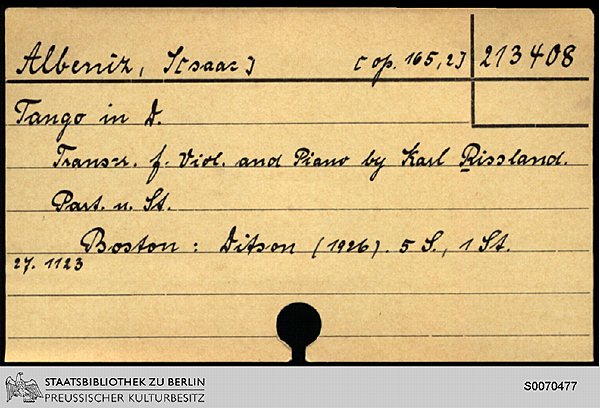 Albeniz, I[saac] [op. 165,2] 213408
Tango in D.
Transcr. f. Viol. and Piano by Karl Rissland.
Part. u. St.
Boston : Ditson (1926). 5 S., 1 St.
27. 1123
STAATSBIBLIOTHEK ZU BERLIN
PREUSSISCHER KULTURBESITZ
S0070477